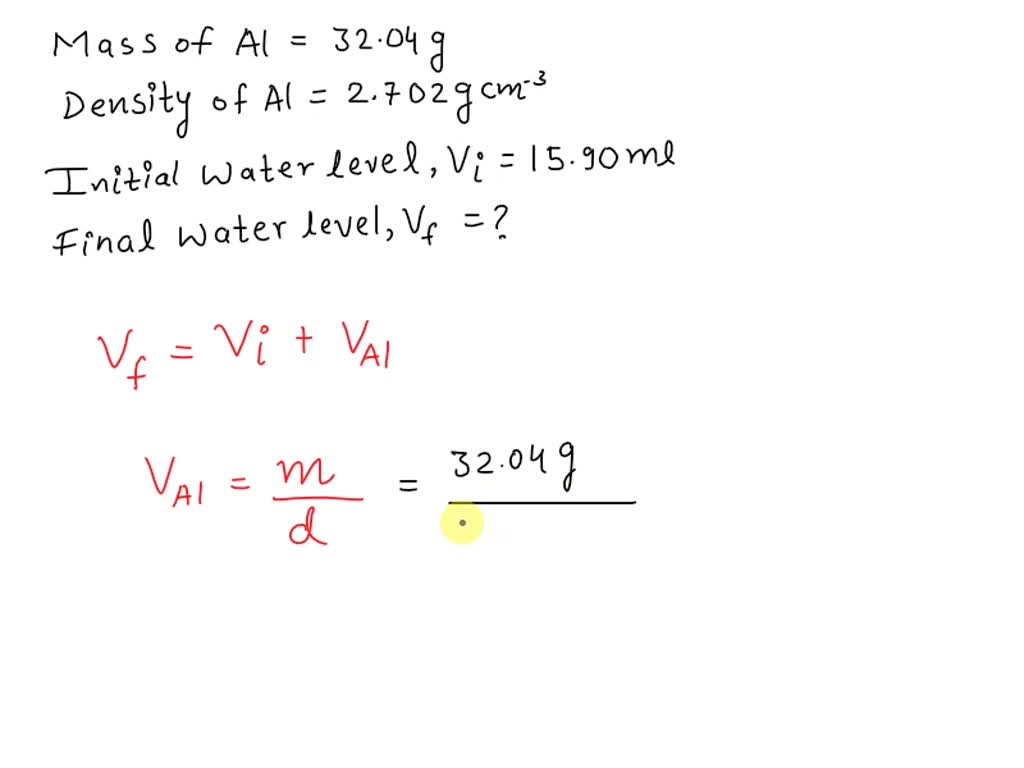 Mass of Al = 32.04 g
Density of Al = 2.702 g cm⁻³
Initial water level, Vi = 15.90 ml
Final water level, Vf = ?
Vf = Vi + VAl
VAl = m/d = 32.04 g